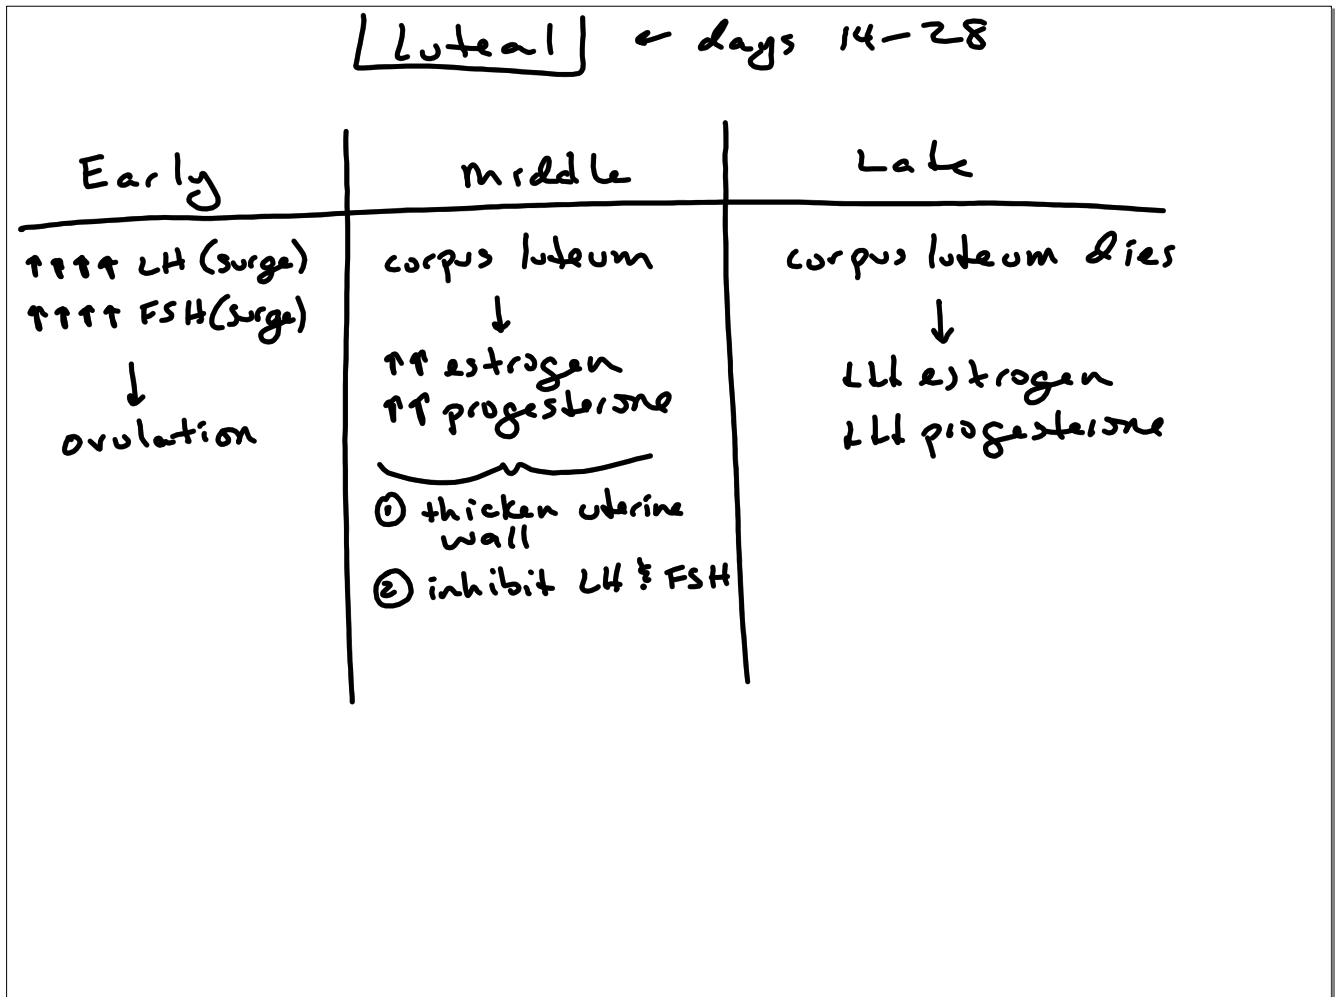 Luteal ← days 14-28
Early
↑↑↑↑ LH (surge)
↑↑↑↑ FSH (surge)
↓
ovulation
Middle
corpus luteum
↓
↑↑ estrogen
↑↑ progesterone
① thicken uterine
wall
② inhibit LH & FSH
Late
corpus luteum dies
↓
↓↓↓ estrogen
↓↓↓ progesterone